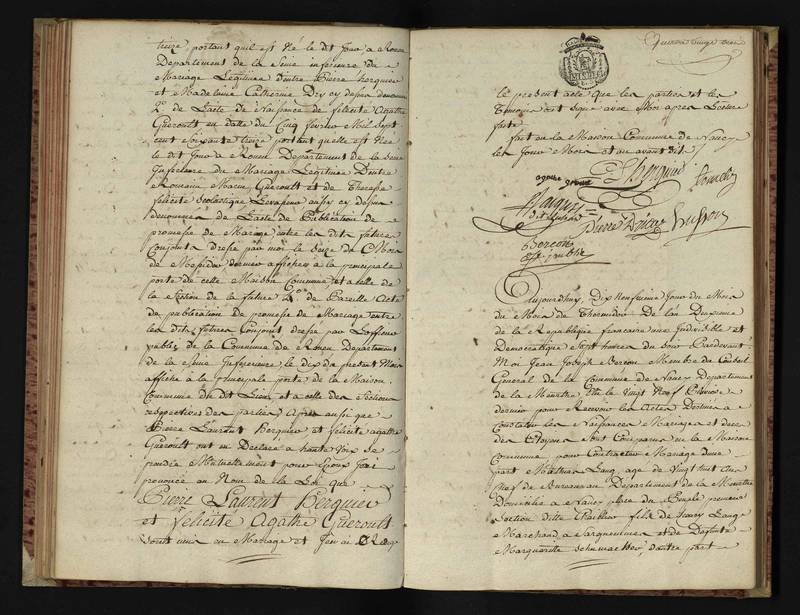 treize, portant quil est Né le dit Jour a Rouen
Departement de la Seine inferieure du
Mariage Légitime d'entre Pierre Berguier
et Madelaine Catherine Dry cy dessus denommés
2º de Lacte de Naissance de félicité Agathe
Guéroult en datte du Cinq fevrier Mil Sept
cent Soixante treize portant quelle est Née
le dit Jour a Rouen Departement de la Seine
Inferieure du Mariage Légitime D'entre
Romain Guéroult et de Therese
félicité Scolastique aussi cy dessus
denommés de Lacte de Publication de
promesse de Mariage entre les dits futurs
Conjoints dressé par moi le Seize du Mois
de Messidor dernier affichée a la principale
porte de cette Maison Commune et a celle de
la Section de la future 4º de Pareille Acte
de publication de promesse de Mariage entre
les dits futures Conjoint dressé par Lofficier
public de la Commune de Rouen Departement
de la Seine Inferieure le dix du présent Mois
affiché a la principale porte de la Maison
Commune du dit Lieu et a celle des Sections
respectives des parties Apres aussi que
Pierre Laurent Berguier et félicité agathe
Guéroult ont en Declaré a haute Voix se
prendre Mutuellement pour Epoux Jai
prononcé au Nom de la Loi que
Pierre Laurent Berguier
et félicité Agathe Guéroult
Sont unis en Mariage et Jen ai Rédigé
Quatre vingt
le présent acte que les parties et les
Temoins ont signé avec Moi apres Lecture
faite
fait en la Maison Commune de Nancy
les Jour Mois et an avant dit
Berguier
agathe gueroult
Pierre
Husson
off. public
Aujourdhuy Dix Neuvieme Jour du Mois
du Mois de Thermidor De lan Deuxieme
de la Republique francaise une Indivisible et
Democratique Sept heures du Soir Pardevant
Moi Jean Joseph Membre du Conseil
General de la Commune de Nancy Departement
de la Meurthe Elu le Vingt Neuf Pluviose
dernier pour Recevoir les Actes Destinés a
Constater les Naissances Mariages et deces
des Citoyens Sont Comparus en la Maison
Commune pour Contracter Mariage dune
part Mathias Lang agé de Vingt huit ans
Departement de la Meurthe
Domicilié a Nancy place du Peuple premiere
Section fils de Lange
Marchand a Sarguemines et de Defunte
Marguerite Schumacher, dautre part